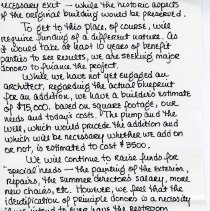 necessary exit - while the historic aspects
of the original building would be preserved.
To get to this place, of course, will
require funding of a different nature. As
it would take at least 10 years of benefit
parties to see results, we are seeking major
donors to finance the project.
While we have not yet engaged an
architect, regarding the actual blueprint
for an addition, we have a builder's estimate
of $75,000. based on square footage, our
needs and today's costs. The pump and the
well, which would precede the addition and
which will be necessary whether we add on
or not, is estimated to cost $3500.
We will continue to raise funds for
"special needs - the painting of the exterior,
repairs, the summer director's salary, more
new chairs, etc. However, we feel that the
identification of principle donors is a necessity
if we intend to have the restroom